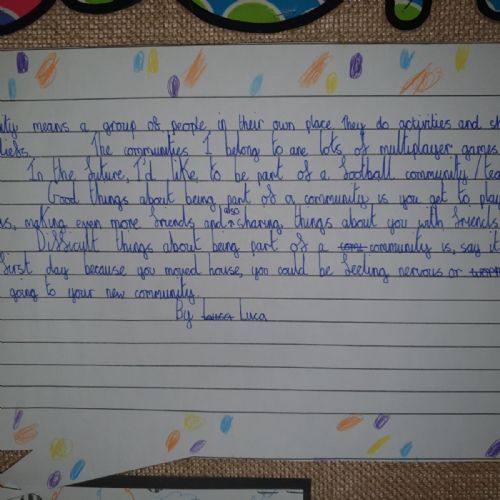 ity means a group of people, in their own place they do activities and sh
liefs. The communities I belong to are lots of multiplayer games.
In the future, I'd like to be part of a football community/tea
Good things about being part of a community is you get to play
s, making even more friends and also sharing things about you with friends
Difficult things about being part of a community is, say it
first day because you moved house, you could be feeling nervous or
going to your new community
By Luca